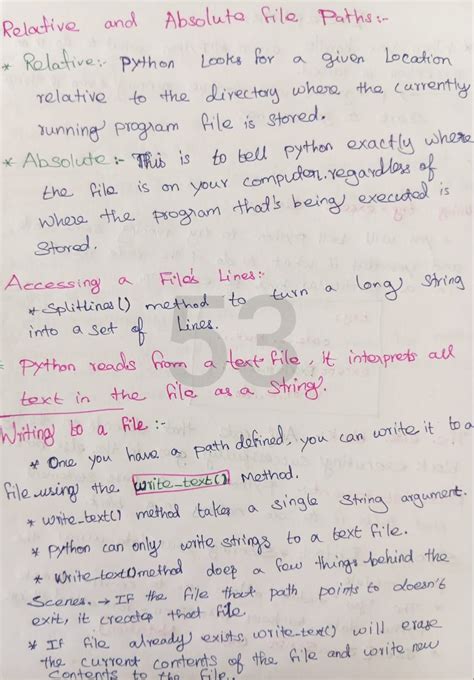 Relative and Absolute file Paths:-
* Relative:- Python Looks for a given Location
relative to the directory where the currently
running program file is stored.
* Absolute:- This is to tell python exactly where
the file is on your computer. regardless of
where the program that's being executed is
stored.
Accessing a File's Lines:-
* Splitlines() method to turn a long string
into a set of Lines.
53
Python reads from a text file, it interprets all
text in the file as a String.
Writing to a file :-
* One you have a path defined.. you can write it to a
file using the write_text() method.
* write_text() method takes a single string argument.
* Python can only write strings to a text file.
* Write_text() method doep a few things behind the
Scenes. → If the file that path points to doesn't
exit, it creates that file.
* If file already exists, write_text() will erase
the current contents of the file and write new
contents to the file..